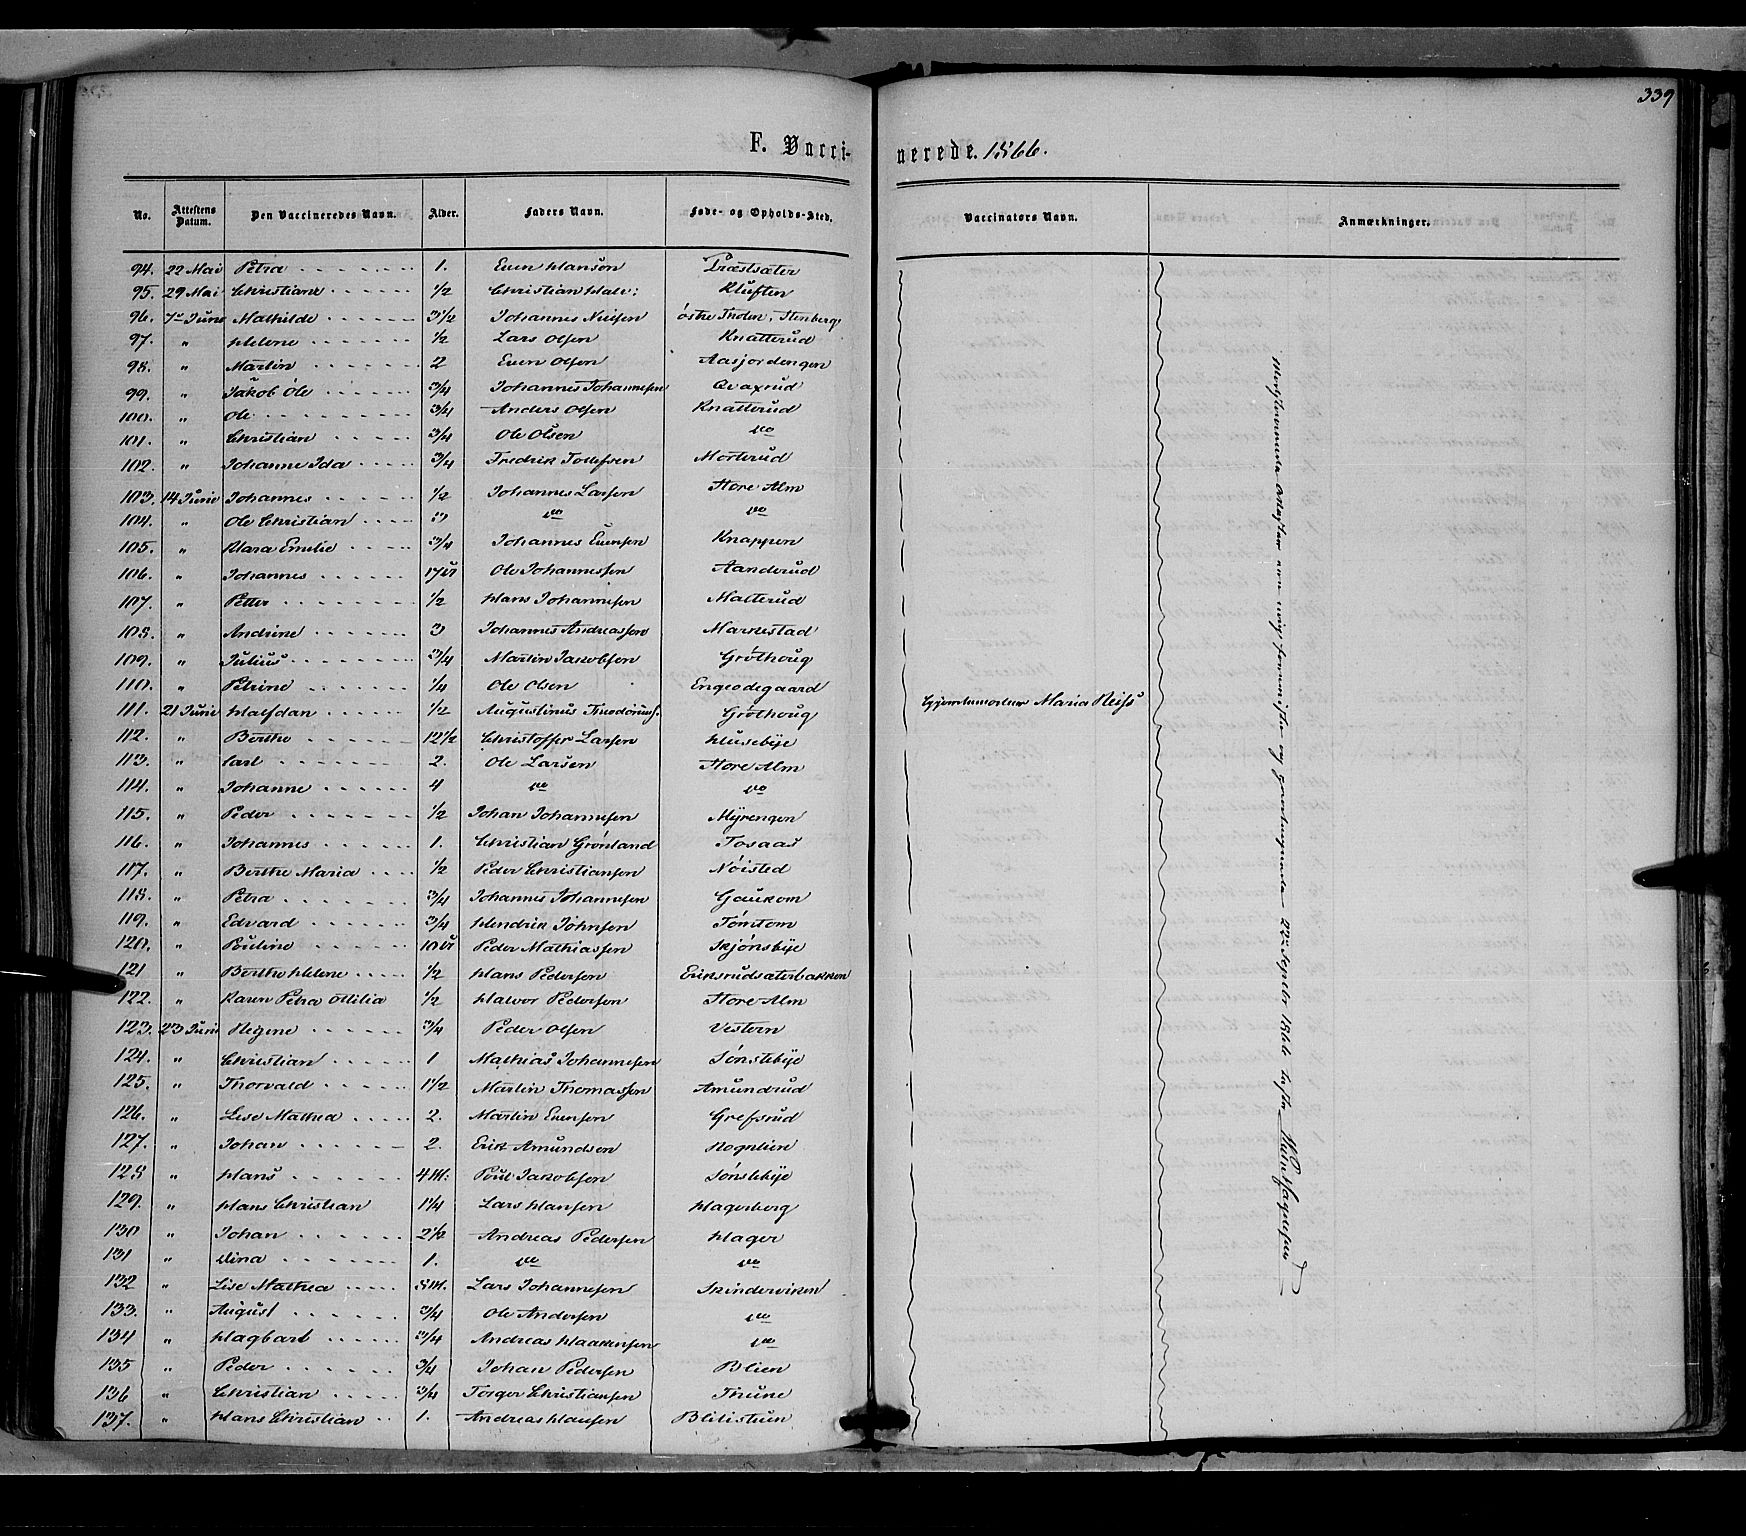 339
F. Vacci- nerede. 1866.
No. Attestens Datum. Den Vaccineredes Navn. Alder. Faders Navn. Føde- og Opholds-Sted. Vaccinators Navn. Anmærkninger.
94. 22 Mai Petra 1. Even Hanson Præstsæter
95. 29 Mai Christiane 1/2 Christian Halv: Kluften
96. 7de Juni Mathilde 3 1/2 Johannes Nielsen østre Thoten, Stenberg
97. " Helene 1/2 Lars Olsen Knatterud
98. " Martin 2 Even Olsen Aasjordengen
99. " Jakob Ole 3/4 Johannes Johannesen Qvaxrud
100. " Ole 3/4 Anders Olsen Knatterud
101. " Christian 3/4 Ole Olsen do
102. " Johanne Ida 3/4 Fredrik Tollefsen Morterud
103. 14 Juni Johannes 1/2 Johannes Larsen Store Alm
104. " Ole Christian 3 do do
105. " Klara Emilie 3/4 Johannes Evensen Knappen
106. " Johannes 17 U Ole Johannessen Aanderud
107. " Petter 1/2 Hans Johannesen Malterud
108. " Andrine 3 Johannes Andreassen Markestad
109. " Julius 3/4 Martin Jakobsen Grøthoug
110. " Petrine 1/4 Ole Olsen Engeodegaard
111. 21 Juni Halfdan 1/2 Augustinus Theodoriuss. Grøthoug Gjordemoder Maria Reiss
112. " Berthe 12 1/2 Christoffer Larsen Husebye
113. " Carl 2. Ole Larsen Store Alm
114. " Johanne 4 do do
115. " Peder 1/2 Johan Johannesen Myrengen
116. " Johannes 1. Christian Grønland Tosaas
117. " Berthe Maria 1/2 Peder Christiansen Nøisted
118. " Petra 3/4 Johannes Johannesen Gaukom
119. " Edvard 3/4 Hendrik Johnsen Tømtom
120. " Pouline 10 U Peder Mathiassen Skjønsbye
121 " Berthe Helene 1/2 Hans Pedersen Eriksrudsæterbakken
122. " Karen Petra Ottilia 1/2 Halvor Pedersen Store Alm
123. 23 Juni Regine 3/4 Peder Olsen Vestern
124. " Christian 1 Mathias Johannesen Sønstebye
125. " Thorvald 1 1/2 Martin Thomassen Amundrud
126. " Lise Mathea 2. Martin Evensen Grefsrud
127. " Johan 2. Erik Amundsen Rognlien
128 " Hans 4 M: Poul Jakobsen Sønstebye
129. " Hans Christian 1 1/4 Lars Hansen Hagerberg
130 " Johan 2 1/2 Andreas Pedersen Hager
131 " Dina 1. do do
132 " Lise Mathea 8 M. Lars Johannesen Skinderviken
133. " August 3/4 Ole Andersen do
134 " Hagbart 3/4 Andreas Haakensen do
135 " Peder 3/4 Johan Pedersen Blien
136 " Christian 3/4 Torger Christiansen Thune
137. " Hans Christian 1. Andreas Hansen Blilistuen